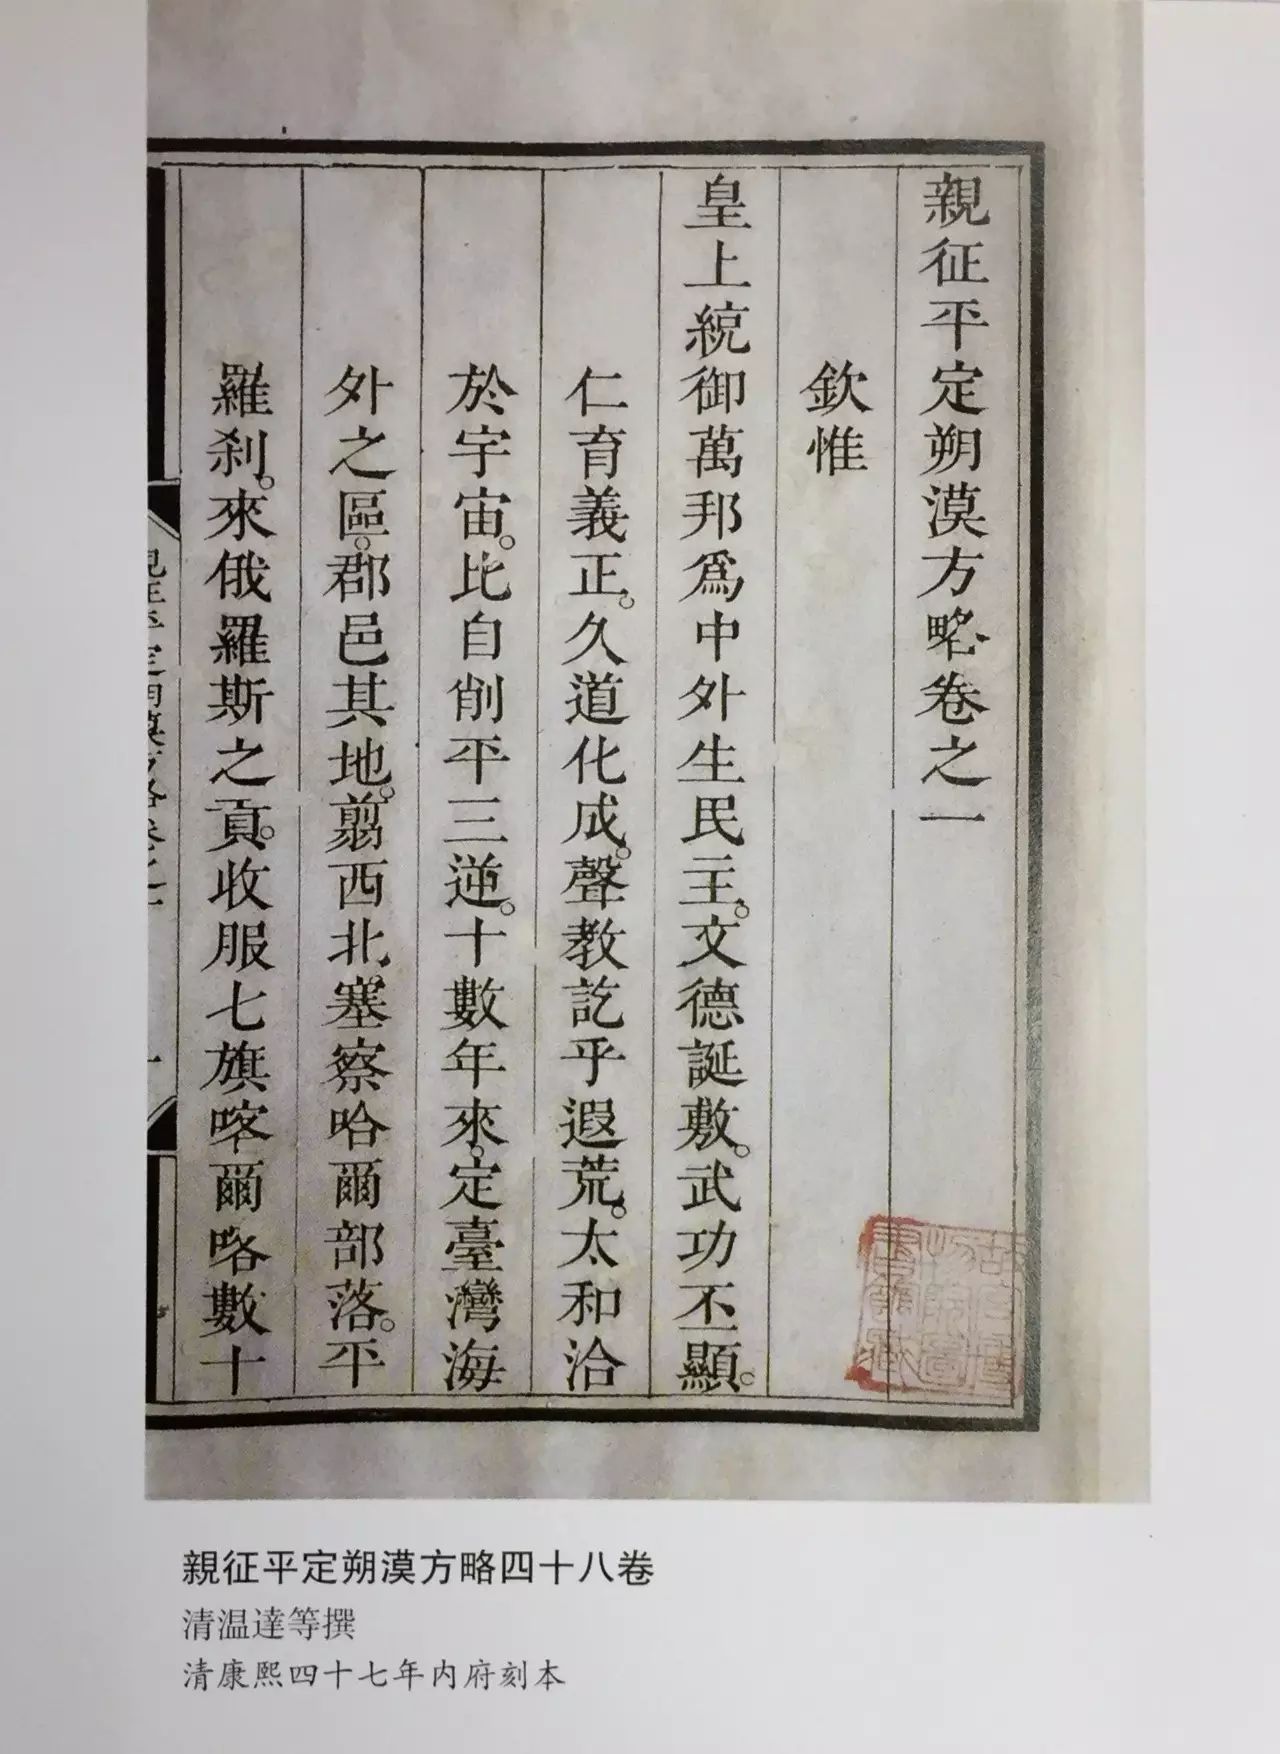 親征平定朔漠方略卷之一
欽惟
皇上統御萬邦爲中外生民主。文德誕敷。武功丕顯。
仁育義正。久道化成。聲教訖乎遐荒。太和洽
於宇宙。比自削平三逆。十數年來。定臺灣海
外之區。郡邑其地。翦西北塞察哈爾部落。平
羅刹。來俄羅斯之貢。收服七旗喀爾喀數十
親征平定朔漠方略卷之一
一
親征平定朔漠方略四十八卷
清温達等撰
清康熙四十七年内府刻本